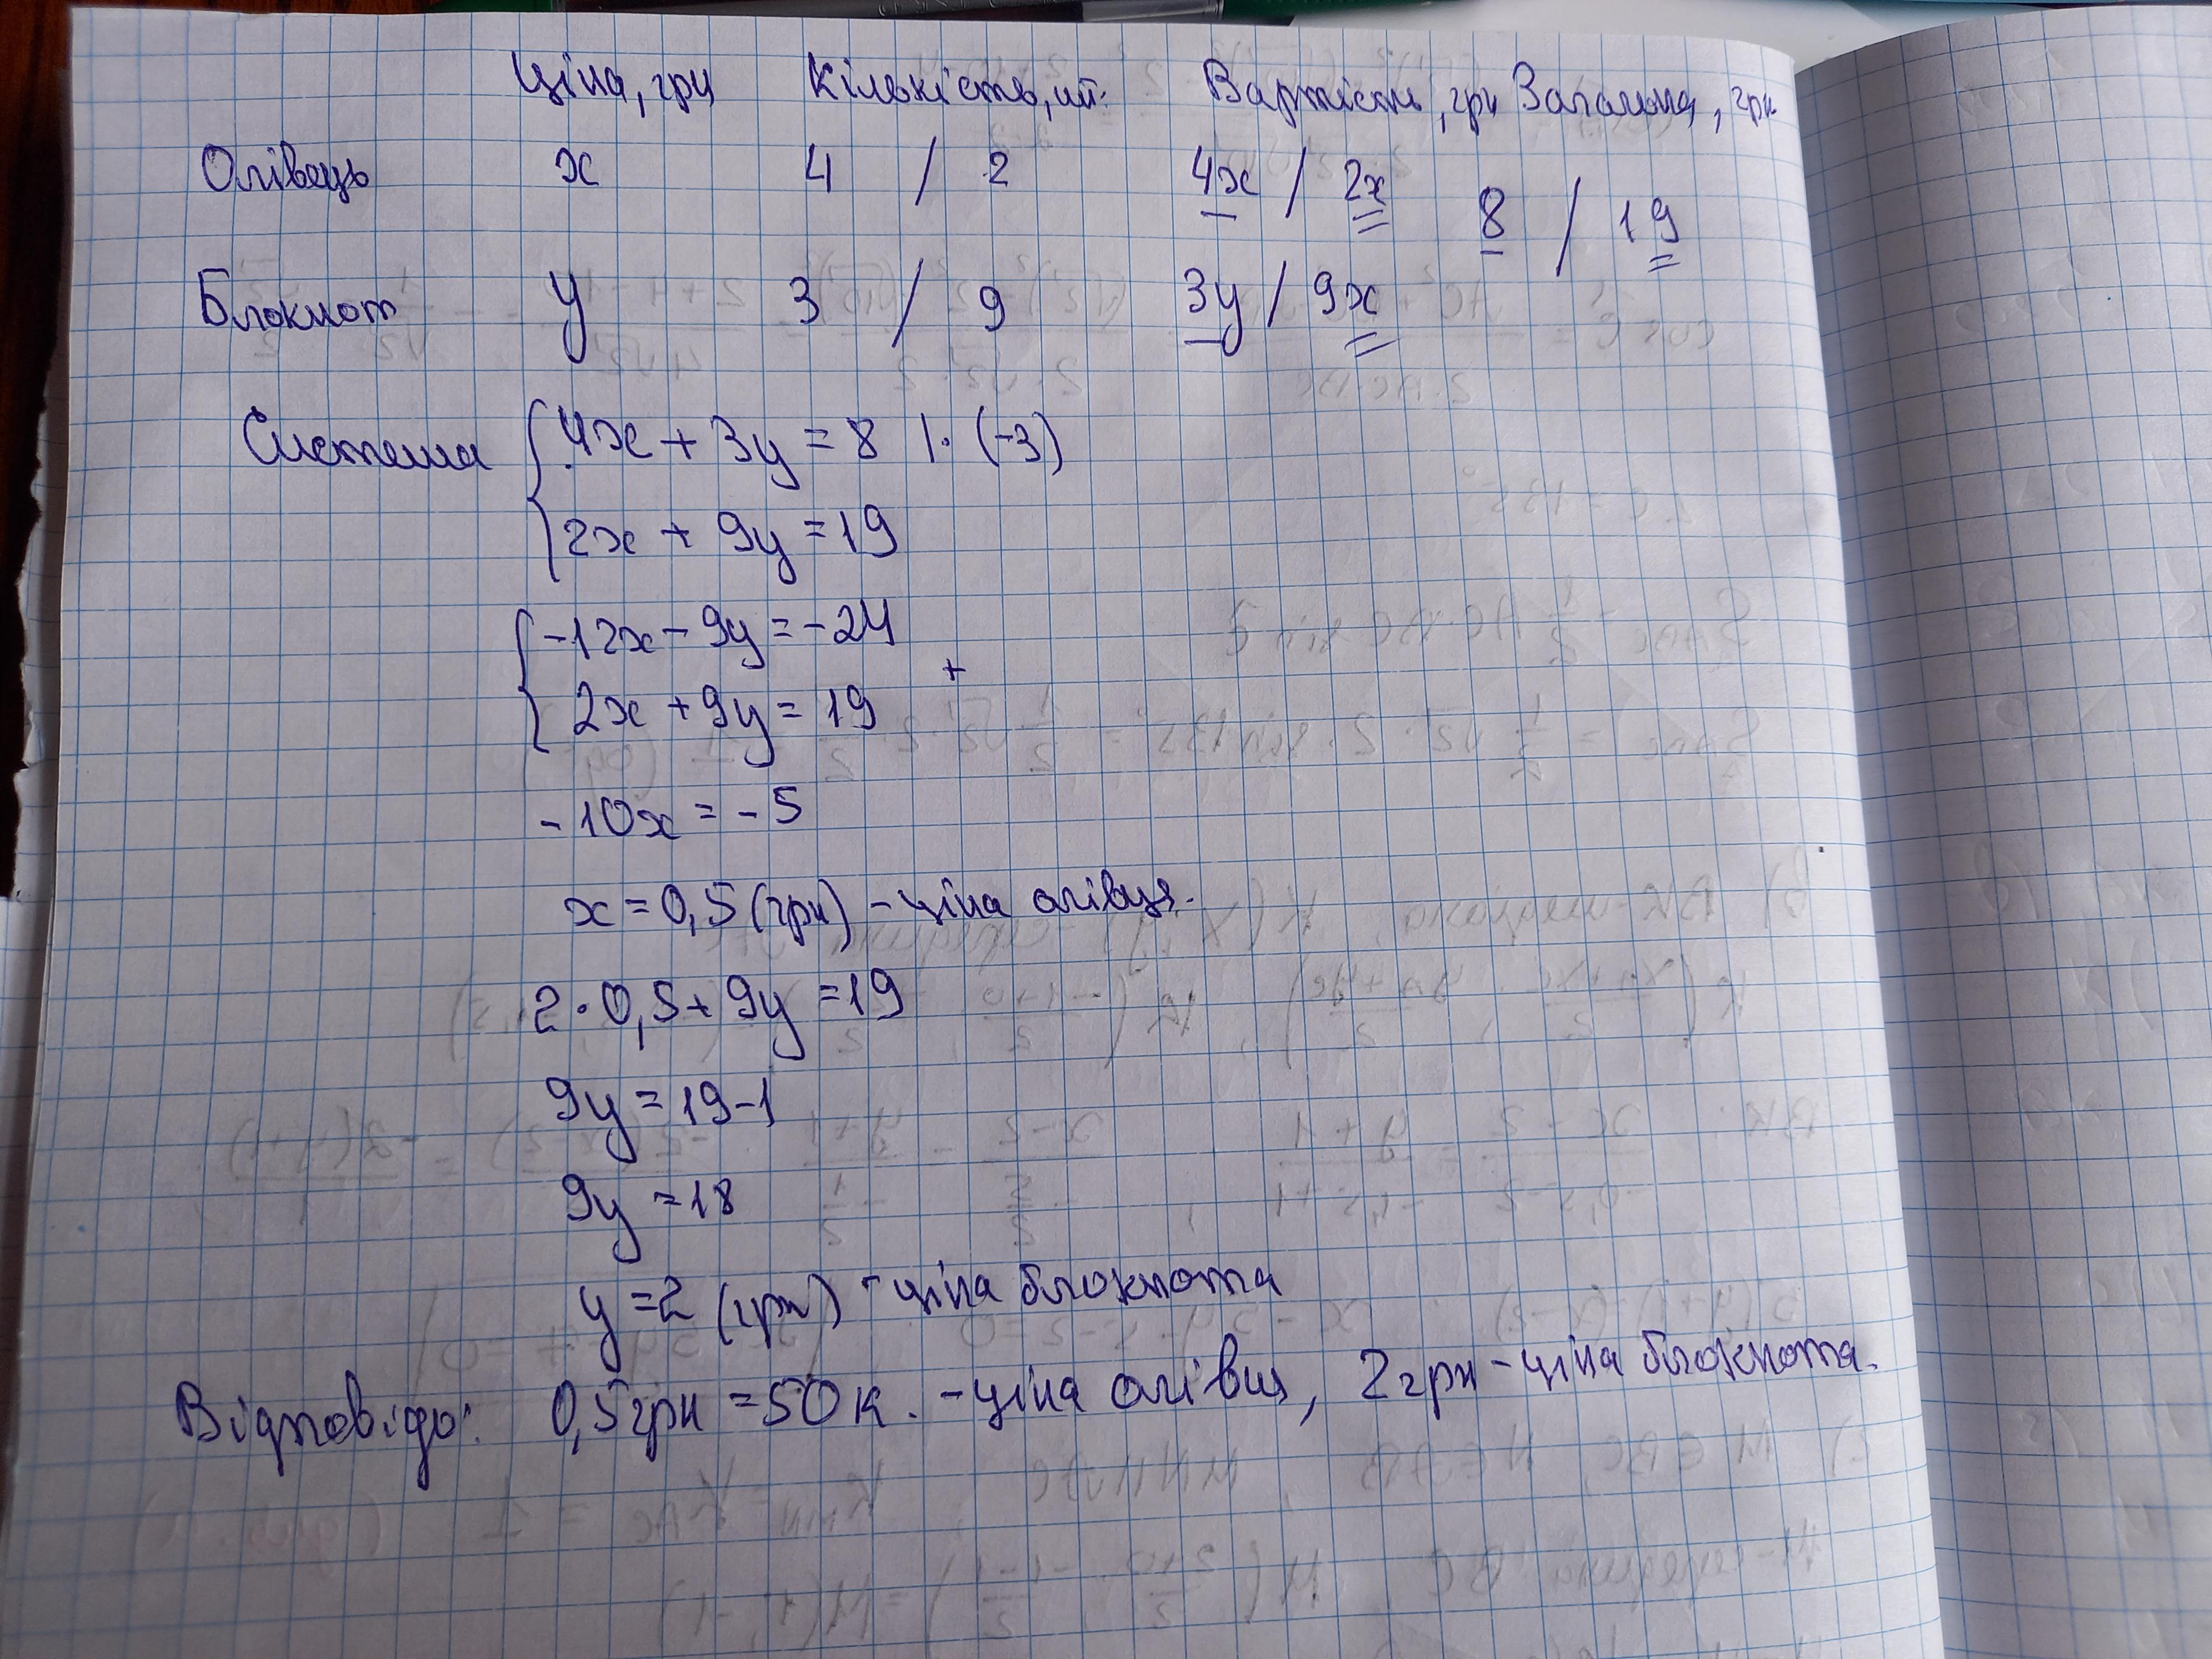 Ціна, грн Кількість, шт. Вартість, грн Загальна, грн
Олівець x 4 / 2 4x / 2x 8 / 19
Блокнот y 3 / 9 3y / 9x
Система { 4x + 3y = 8 |· (-3)
2x + 9y = 19
{ -12x - 9y = -24
+
2x + 9y = 19
-10x = -5
x = 0,5 (грн) - ціна олівця.
2 · 0,5 + 9y = 19
9y = 19-1
9y = 18
y = 2 (грн) - ціна блокнота
Відповідь: 0,5 грн = 50 к. - ціна олівця, 2 грн - ціна блокнота.